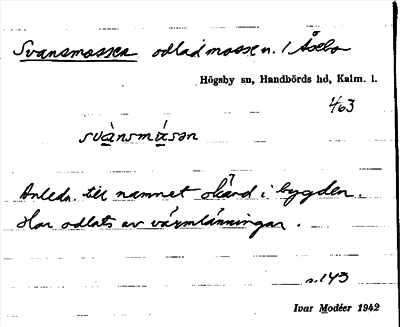 Svansmossen odlad mosse n. / Åsebo
Högsby sn, Handbörds hd, Kalm. l.
1/463
svànsmásən
Anledn. till namnet okänd i bygden.
Har odlats av värmlänningar.
s. 143
Ivar Modéer 1942